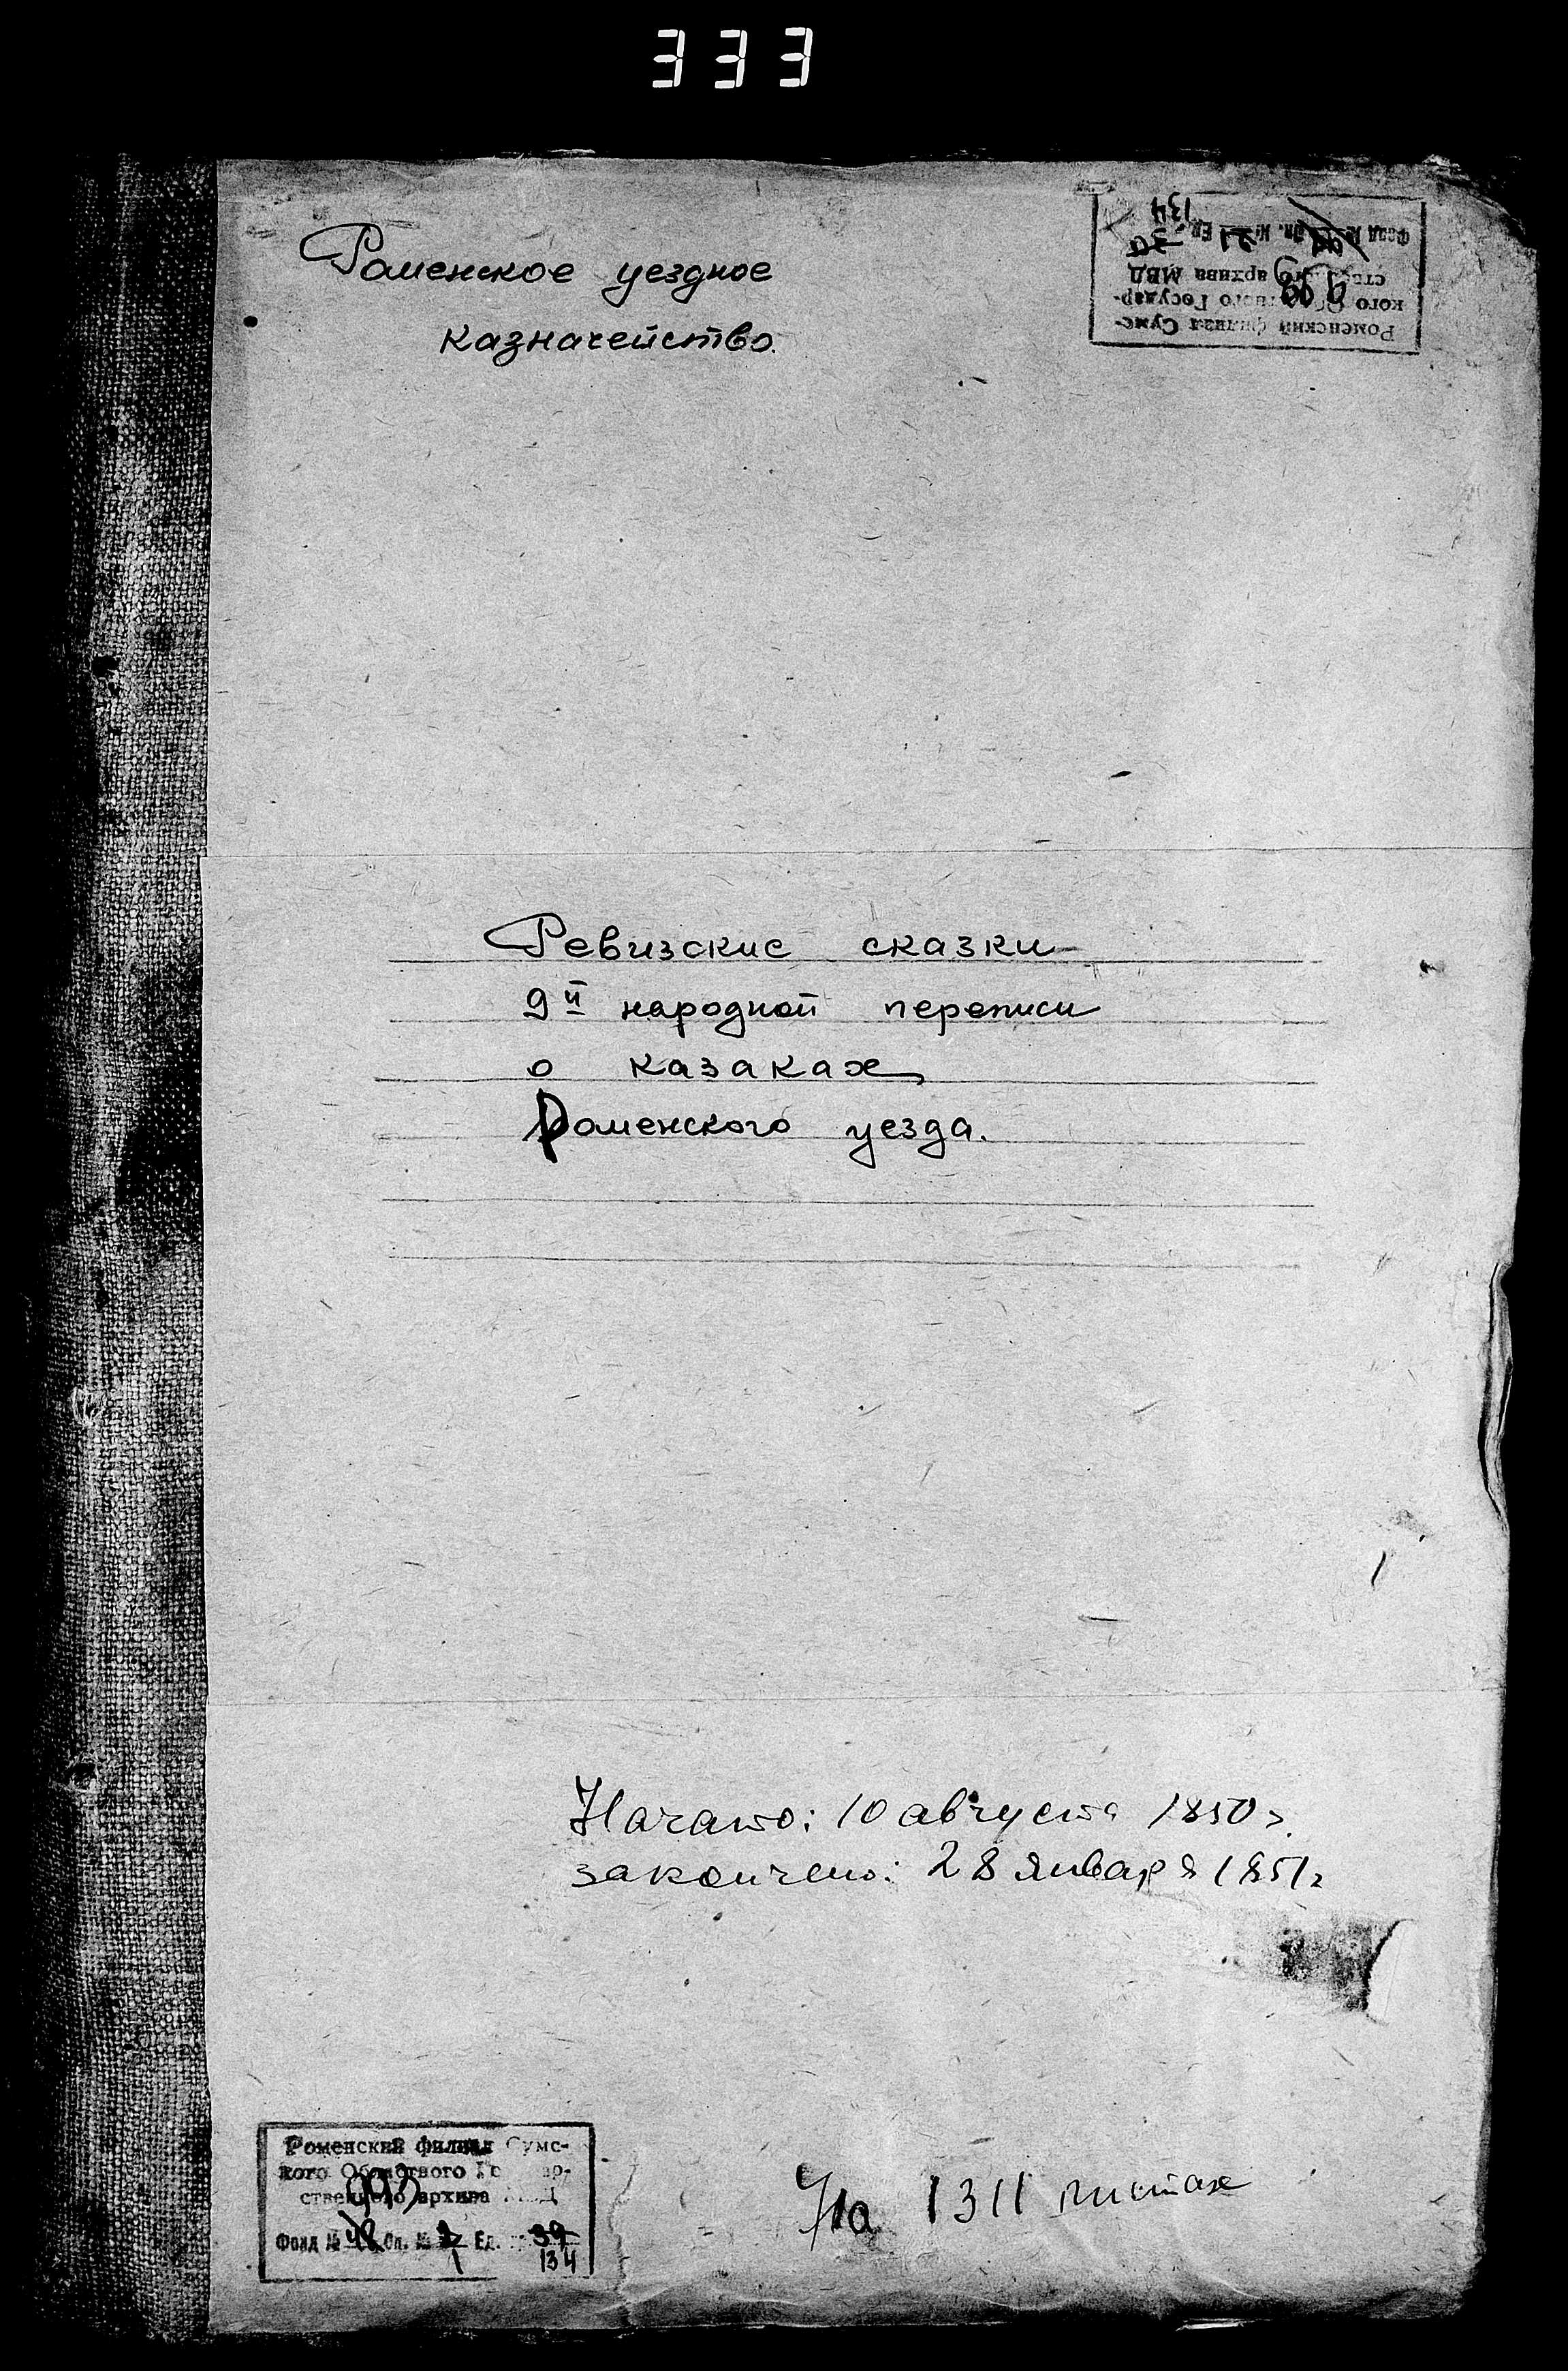 333
Роменское уездное
казначейство.
Роменский филиал Сумс-
кого Государ-
архива МВД
Фонд № Оп. № 21 Ед. 39
134
Ревизские сказки
9й народной переписи
о казаках
Роменского уезда.
Начато: 10 августа 1850 г.
закончено: 28 января 1851 г
Роменский филиал Сумс-
кого Областного
ственного архива
993
Фонд № 48 Оп. № Ед. 39
1 134
На 1311 листах